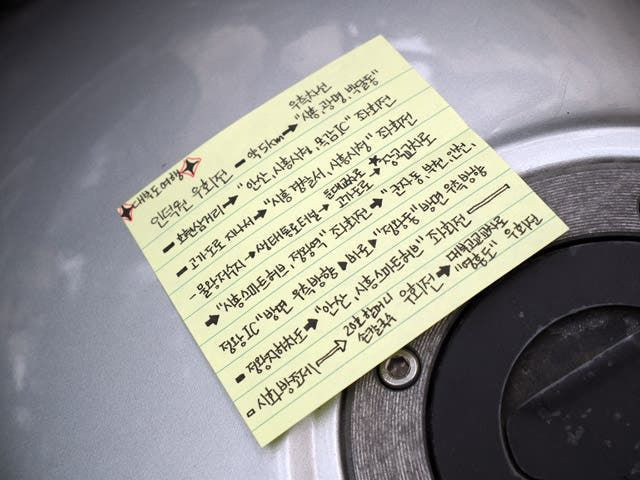 ✦대부도여행✦ 우측차선
인덕원 우회전 - 약5km → "시흥,광명,박달동"
- 삼거리 → "안산,시흥시청,목감IC" 좌회전
- 고가도로 지나서 → "시흥경찰서,시흥시청" 좌회전
- 물왕저수지 → 생태통로터널 → 고가도로
→ "시흥스마트허브, 정왕역" 좌회전 → "군자동, 부천, 인천,
정왕IC" 방면 우측방향 ▶ 바로 ▶ "정왕동" 방면 우측방향
- 정왕지하차도 → "안산, 시흥스마트허브" 좌회전
시화방조제 ⇒ 20호할머니 손칼국수 우회전 → "영흥도" 우회전